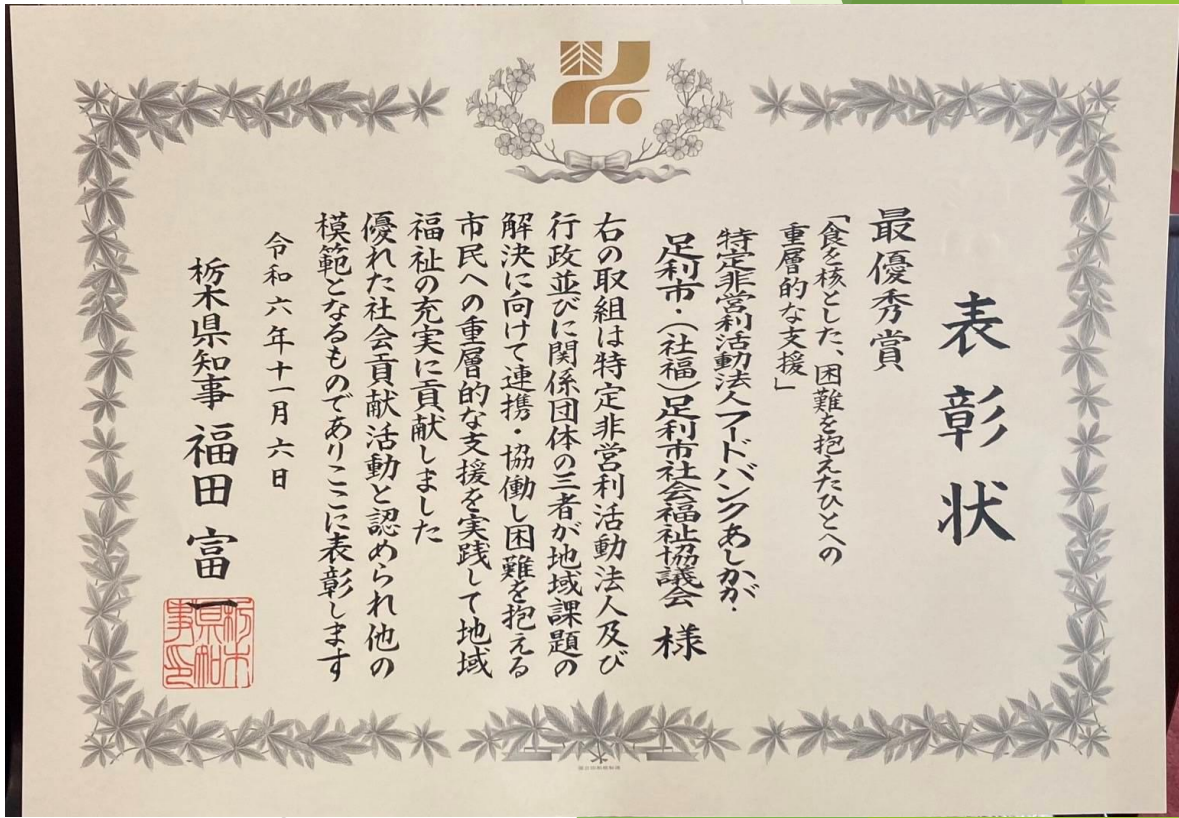 表彰状
最優秀賞
「食を核とした、困難を抱えたひとへの
重層的な支援」
特定非営利活動法人フードバンクあしかが・
足利市・(社福)足利市社会福祉協議会 様
右の取組は特定非営利活動法人及び
行政並びに関係団体の三者が地域課題の
解決に向けて連携・協働し困難を抱える
市民への重層的な支援を実践して地域
福祉の充実に貢献しました
優れた社会貢献活動と認められ他の
模範となるものでありここに表彰します
令和六年十一月六日
栃木県知事 福田富一
栃木
県知
事印